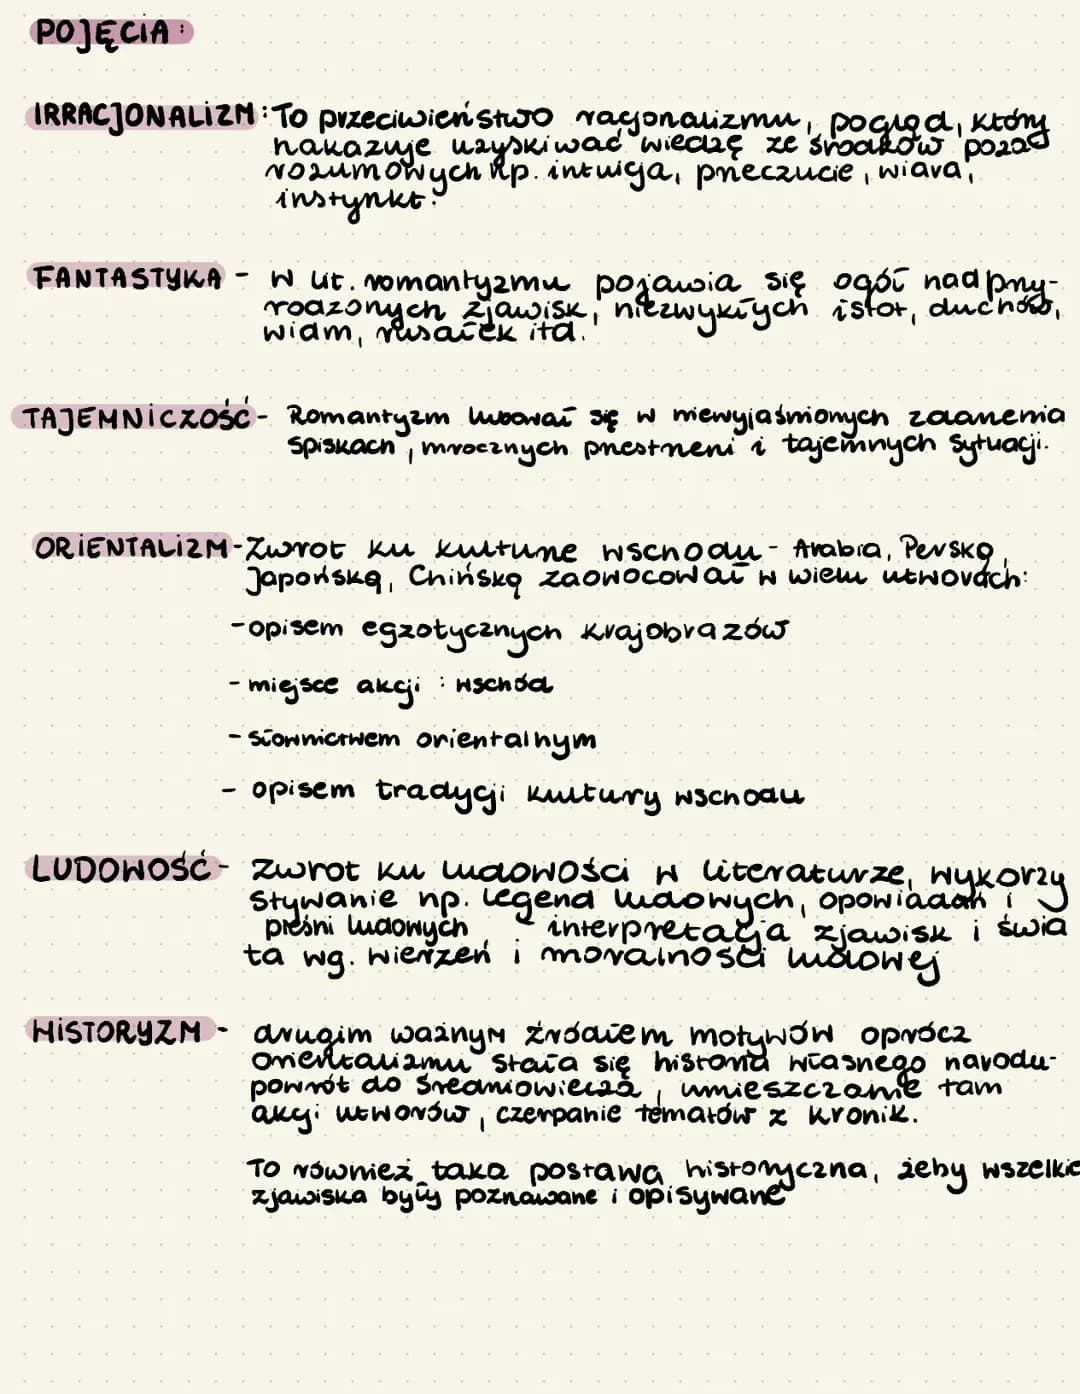 POJĘCIA:
IRRACJONALIZM: To przeciwieństwo racjonalizmu, pogląd, który
nakazuje uzyskiwać wiedzę ze środków poza
rozumowych np. intuicja, przeczucie, wiara,
instynkt.
FANTASTYKA - W lit. romantyzmu pojawia się ogół nadprzy-
rodzonych zjawisk, niezwykłych istot, duchów,
widm, rusałek itd.
TAJEMNICZOŚĆ - Romantyzm lubował się w niewyjaśnionych zdarzenia
spiskach, mrocznych przestrzeni i tajemnych sytuacji.
ORIENTALIZM - Zwrot ku kulturze wschodu - Arabia, Perską,
Japońską, Chińską zaowocował w wielu utworach:
- opisem egzotycznych krajobrazów
- miejsce akcji : wschód
- słownictwem orientalnym
- opisem tradycji kultury wschodu
LUDOWOŚĆ - Zwrot ku ludowości w literaturze, wykorzy
stywanie np. legend ludowych, opowiadań i
pieśni ludowych - interpretacja zjawisk i świa
ta wg. wierzeń i moralności ludowej
HISTORYZM - drugim ważnym źródłem motywów oprócz
orientalizmu stała się historia własnego narodu-
powrót do średniowiecza, umieszczanie tam
akcji utworów, czerpanie tematów z kronik.
To również taka postawa historyczna, żeby wszelkie
zjawiska były poznawane i opisywane